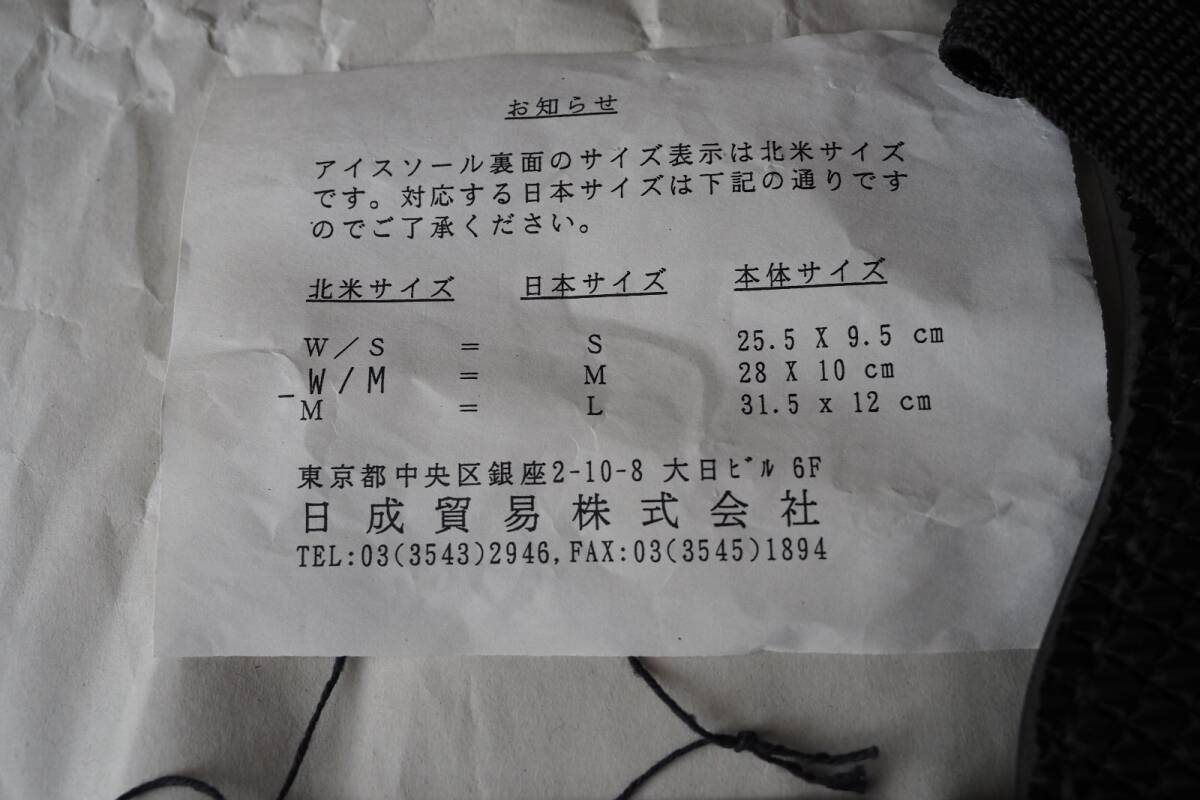 お知らせ
アイスソール裏面のサイズ表示は北米サイズ
です。対応する日本サイズは下記の通りです
のでご了承ください。
北米サイズ 日本サイズ 本体サイズ
W／S = S 25.5 X 9.5 cm
W/M = M 28 X 10 cm
M = L 31.5 x 12 cm
東京都中央区銀座2-10-8 大日ﾋﾞﾙ 6F
日成貿易株式会社
TEL:03(3543)2946,FAX:03(3545)1894